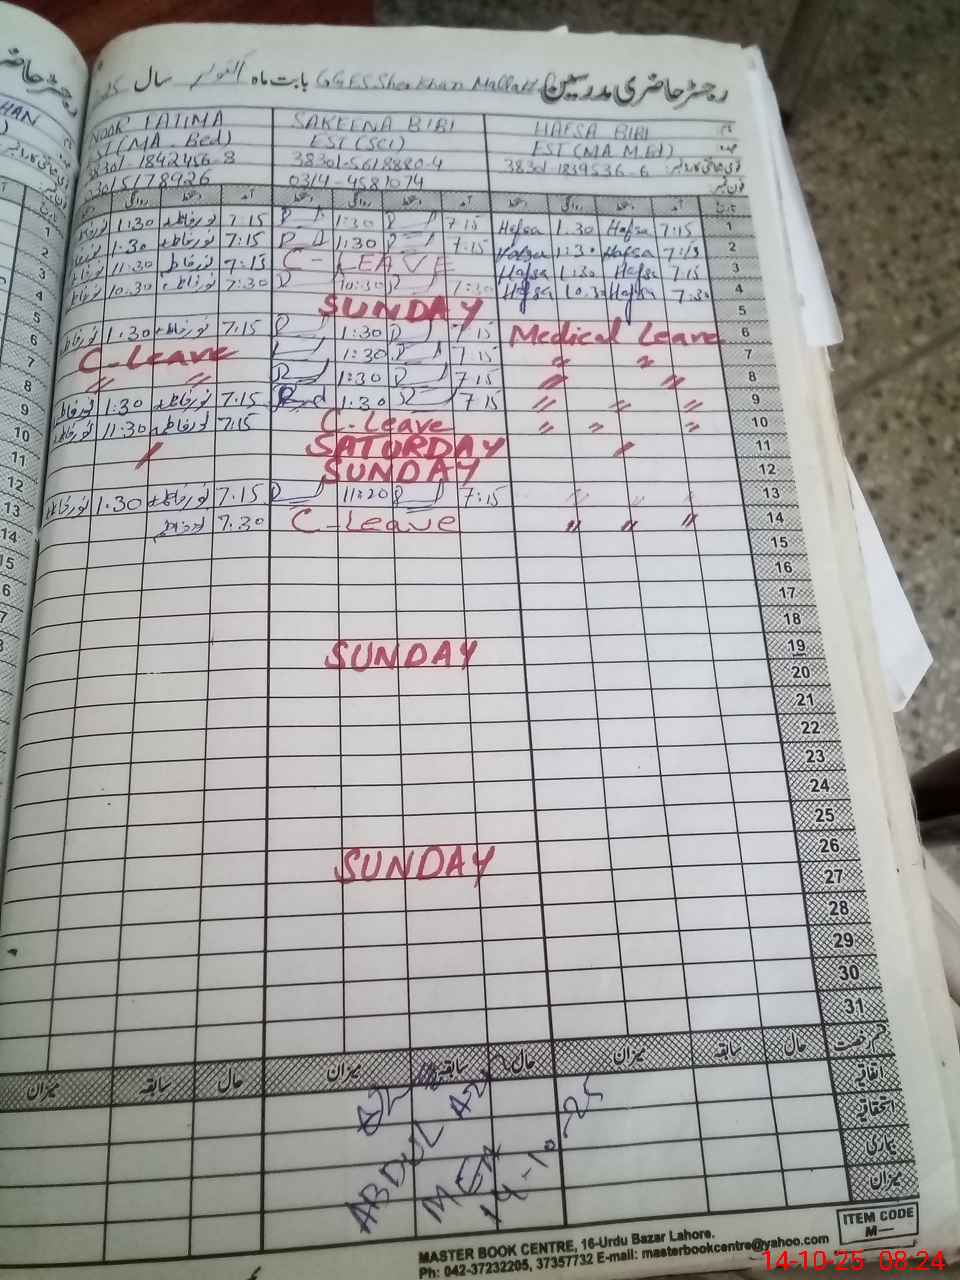 رجسٹر حاضری مدرسین GGES Sher Khan Mallah بابت ماہ اکتوبر سال
HAFSA BIBI SAKEENA BIBI NOOR FATIMA
EST (MA M.Ed) EST (SCI) EST (MA. Bed)
38301-1839536-6 38301-5618880-4 38301-1842456-8
0314-4581074 03015178926
تاریخ آمد دستخط روانگی دستخط آمد دستخط روانگی دستخط آمد دستخط روانگی دستخط
1 7:15 Hafsa 1.30 Hafsa 7:15 1:30 7:15 نور فاطمہ 1:30
2 7:15 Hafsa 1:30 Hafsa 7:15 1:30 7:15 نور فاطمہ 1:30
3 7:15 Hafsa 1:30 Hafsa C-LEAVE 7:15 نور فاطمہ 11:30
4 7:30 Hafsa 10.30 Hafsa 7:30 10:30 7:30 نور فاطمہ 10.30
5 SUNDAY
6 Medical Leave 7:15 1:30 7:15 نور فاطمہ 1.30
7 " " 7:15 1:30 C-Leave
8 " " 7:15 1:30 " "
9 " " " 7:15 1:30 7:15 نور فاطمہ 1:30
10 " " " C-Leave 7:15 نور فاطمہ 11:30
11 SATURDAY
12 SUNDAY
13 " " " 7:15 11:20 7.15 نور فاطمہ 1.30
14 " " " C-Leave 7.30 نور فاطمہ
15
16
17
18
19 SUNDAY
20
21
22
23
24
25
26 SUNDAY
27
28
29
30
31
حال سابقہ میزان حال سابقہ میزان حال سابقہ میزان
اتفاقیہ
استحقاقیہ
بیماری
میزان
ABDUL AZ
MEA
14-10-25
ITEM CODE
M—
MASTER BOOK CENTRE, 16-Urdu Bazar Lahore.
Ph: 042-37232205, 37357732 E-mail: masterbookcentre@yahoo.com
14-10-25 08:24